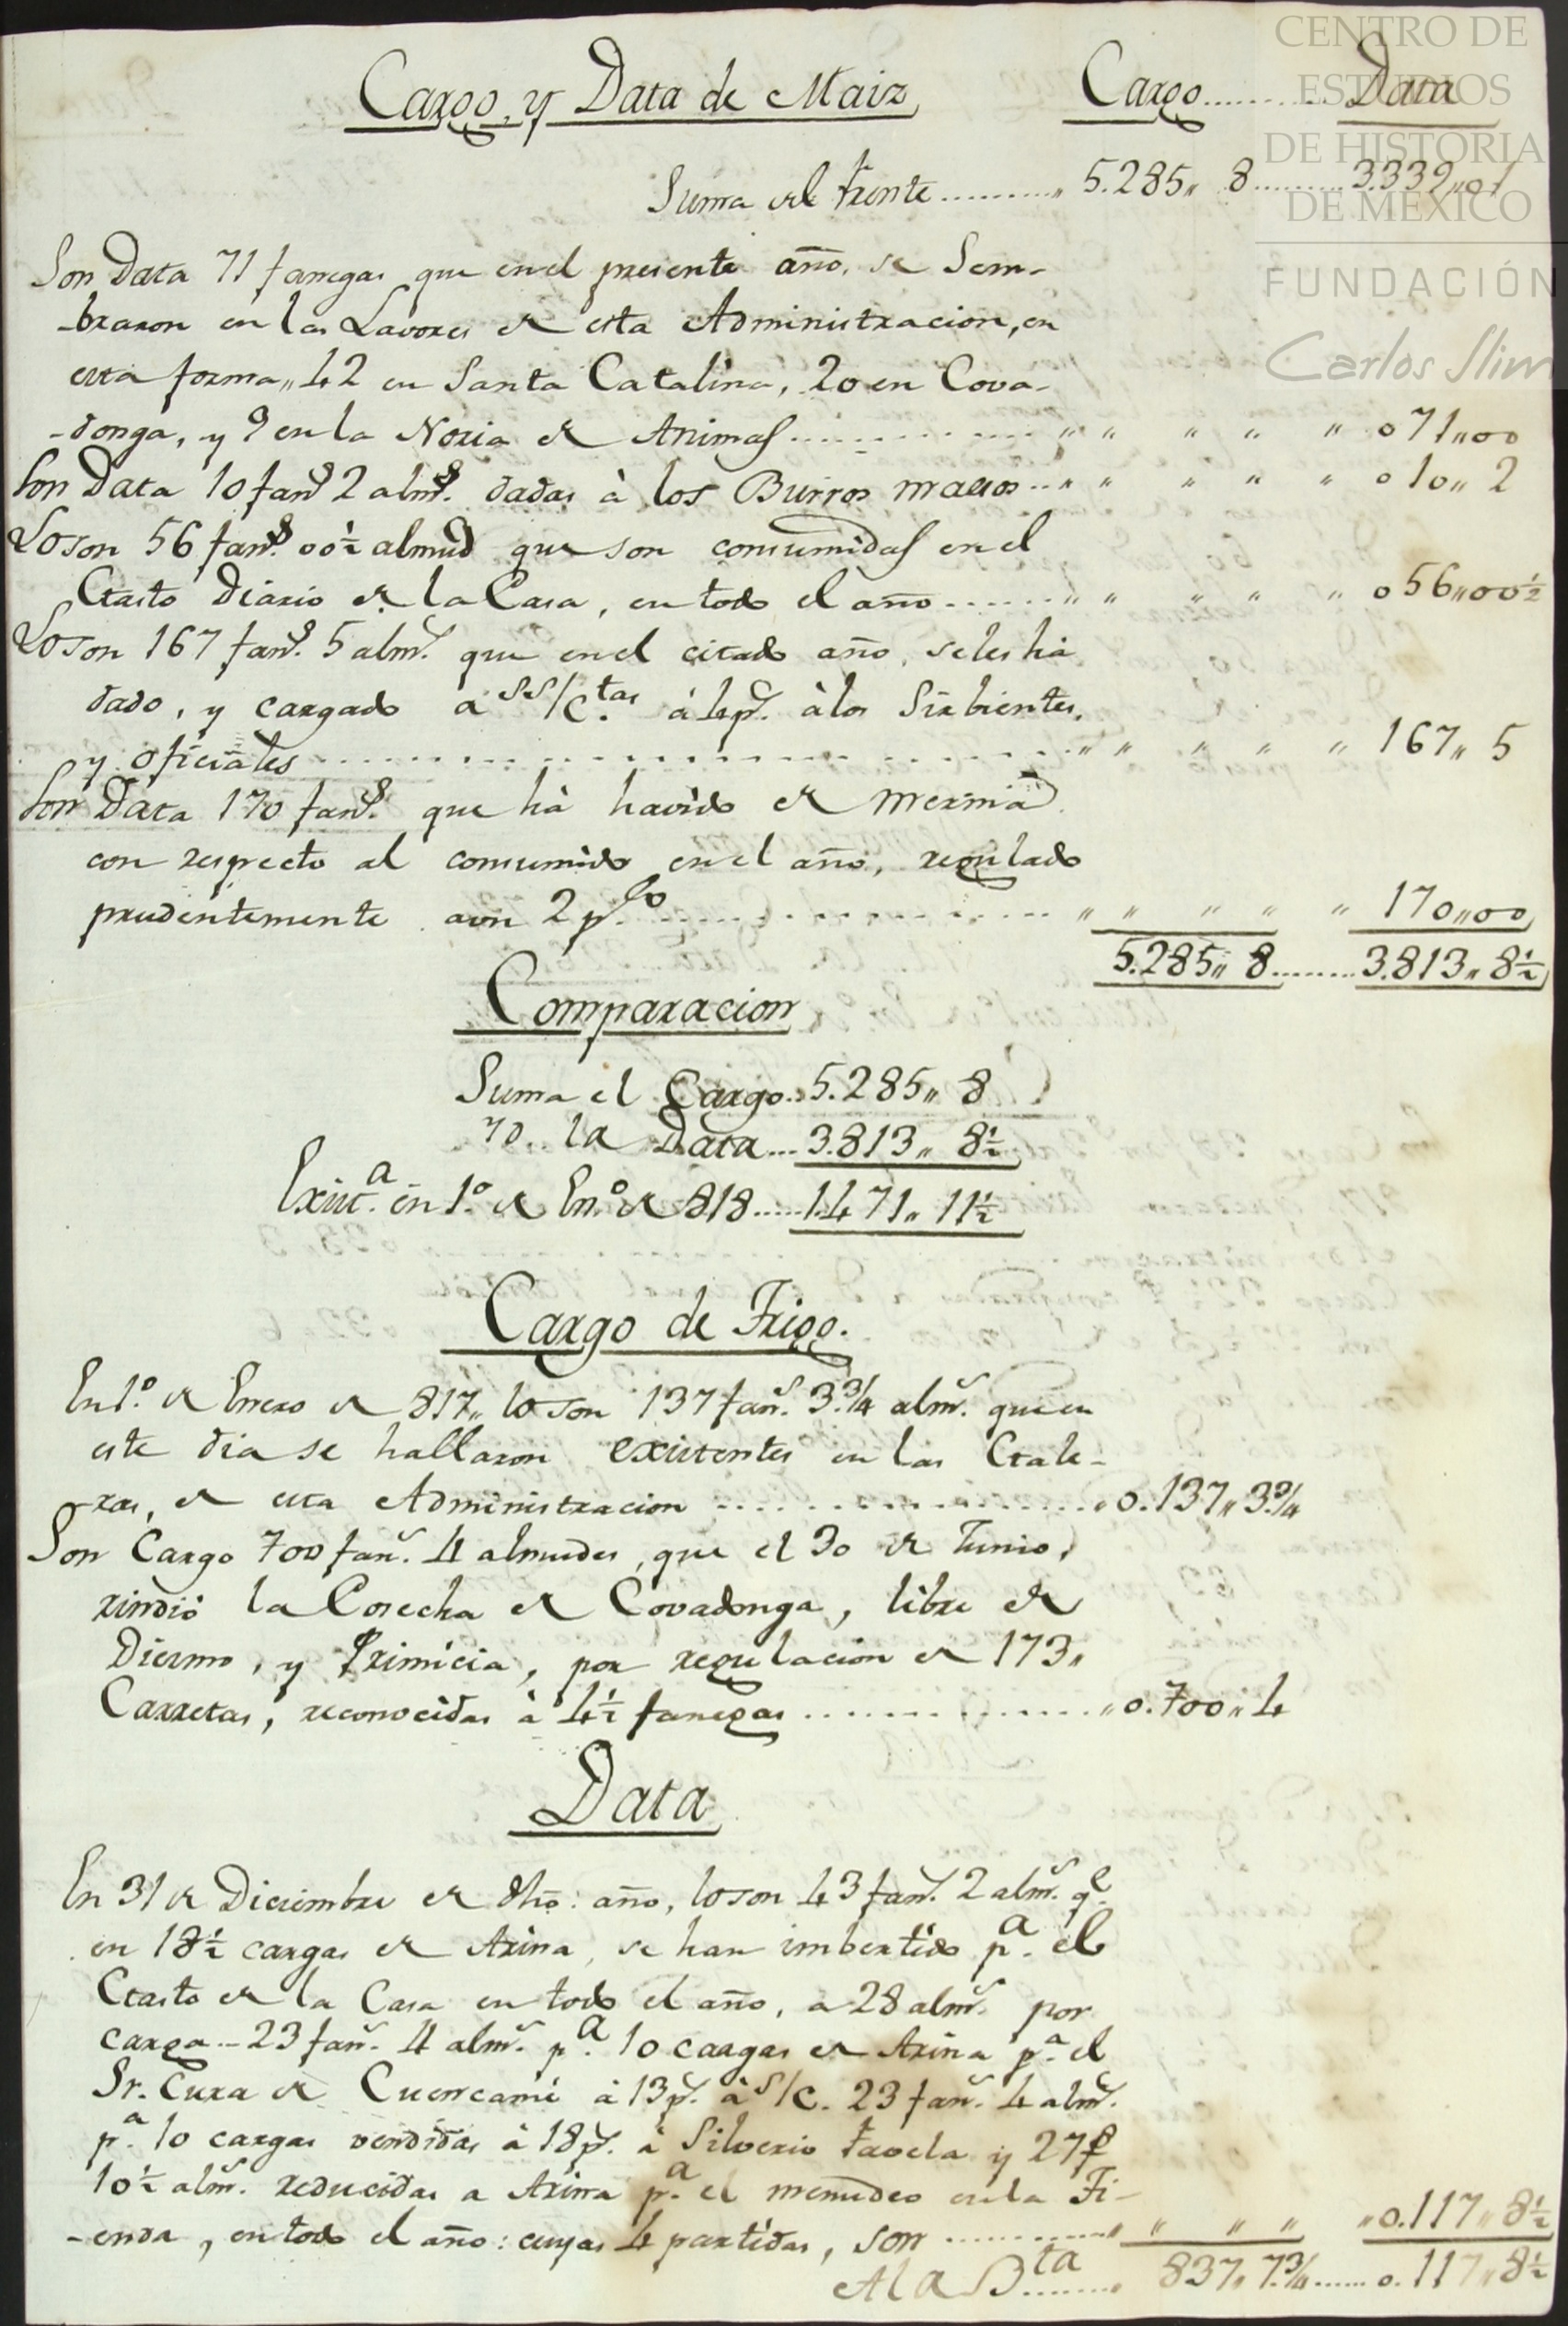 CENTRO DE
ESTUDIOS
DE HISTORIA
DE MEXICO
FUNDACIÓN
Carlos Slim
Cargo, y Data de Maiz Cargo.......... Data
Suma del frente .......... 5.285,, 8 ......... 3.339,,01
Son Data 71 fanegas que en el presente año, se Sem-
-braron en las Lavores de esta Administracion, en
esta forma,, 42 en Santa Catalina, 20 en Cova-
-donga, y 9 en la Noria de Animas .......... ,, ,, ,, ,, ,, 071,,00
Son Data 10 fans 2 alms. dadas à los Burros maesos .. ,, ,, ,, ,, ,, 010,, 2
Loson 56 fans. 00½ almud que son consumidas en el
Gasto Diario de la Casa, en todo el año ...... ,, ,, ,, ,, ,, 056,,00½
Loson 167 fans. 5 alms. que en el citado año, seles hà
dado, y cargado a ss/ctas. á 4ps. à los Sirbientes,
y oficiales .......... ,, ,, ,, ,, ,, 167,, 5
Son Data 170 fans. que hà havido de merma
con respecto al consumido en el año, regulado
prudentemente aun 2 p.% .......... ,, ,, ,, ,, ,, 170,,00
5.285,, 8 ........ 3.813,, 8½
Comparacion
Suma el Cargo.. 5.285,, 8
YD.. la Data... 3.813,, 8½
Exista. en 1º. de Enº. de 818..... 1.471,, 11½
Cargo de Trigo.
En 1º. de Enero de 817,, loson 137 fans. 3¾ alms. que en
este dia se hallaron existentes en las Gale-
-ras, de esta Administracion .......... 0.137,, 3¾
Son Cargo 700 fans. 4 almudes, que el 30 de Junio,
rindió la Cosecha de Covadonga, libre de
Diesmo, y Primicia, por regulacion de 173,,
Carretas, reconocidas à 4½ fanegas .......... ,,0.700,,4
Data
En 31 de Diciembre de dho: año, loson 43 fans. 2 alms. qe.
en 18½ cargas de Arina, se han imbertido pa. el
Gasto de la Casa en todo el año, a 28 alms. por
carga - 23 fans. 4 alms. pa. 10 cargas de Arina pa. el
Sr. Cura de Cuencamé à 13ps. à s/c. 23 fans. 4 alms.
pa. 10 cargas vendidas à 18ps. à Silverio Favela y 27 fs
10½ alms. reducidas a Arina pa. el menudeo en la Ti-
-enda, en todo el año: cuyas 4 partidas, son .......... ,, ,, ,, ,, ,,0.117,, 8½
A la Bta ........ 837,, 7¾ ...... 0.117,, 8½